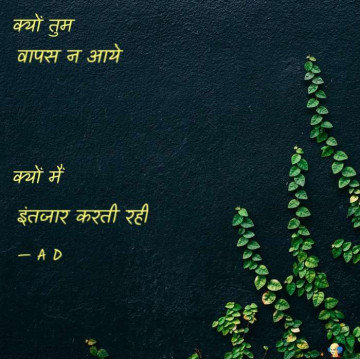 क्यों तुम
वापस न आये
क्यों मैं
इंतजार करती रही
– A D